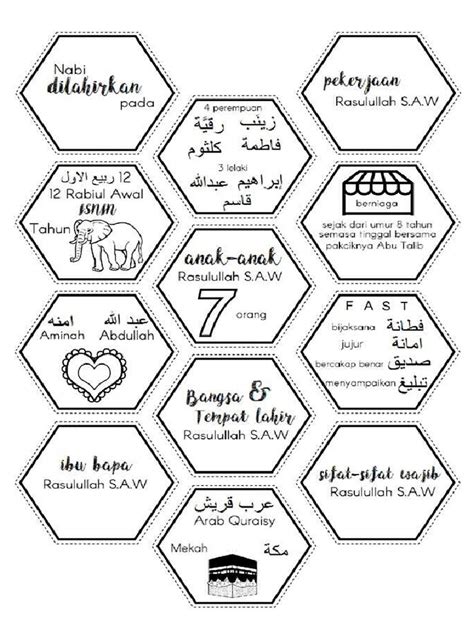 Nabi
dilahirkan
pada
12 ربيع الاول
12 Rabiul Awal
ISNIN
Tahun
امنه عبد الله
Aminah Abdullah
ibu bapa
Rasulullah S.A.W
4 perempuan
زينب رقيَّة
فاطمة كلثوم
3 lelaki
إبراهيم عبدالله
قاسم
anak-anak
Rasulullah S.A.W
7 orang
Bangsa &
Tempat lahir
Rasulullah S.A.W
عرب قريش
Arab Quraisy
Mekah مكة
pekerjaan
Rasulullah S.A.W
berniaga
sejak dari umur 8 tahun
semasa tinggal bersama
pakciknya Abu Talib
F A S T
bijaksana فطانة
jujur امانة
bercakap benar صديق
menyampaikan تبليغ
sifat-sifat wajib
Rasulullah S.A.W